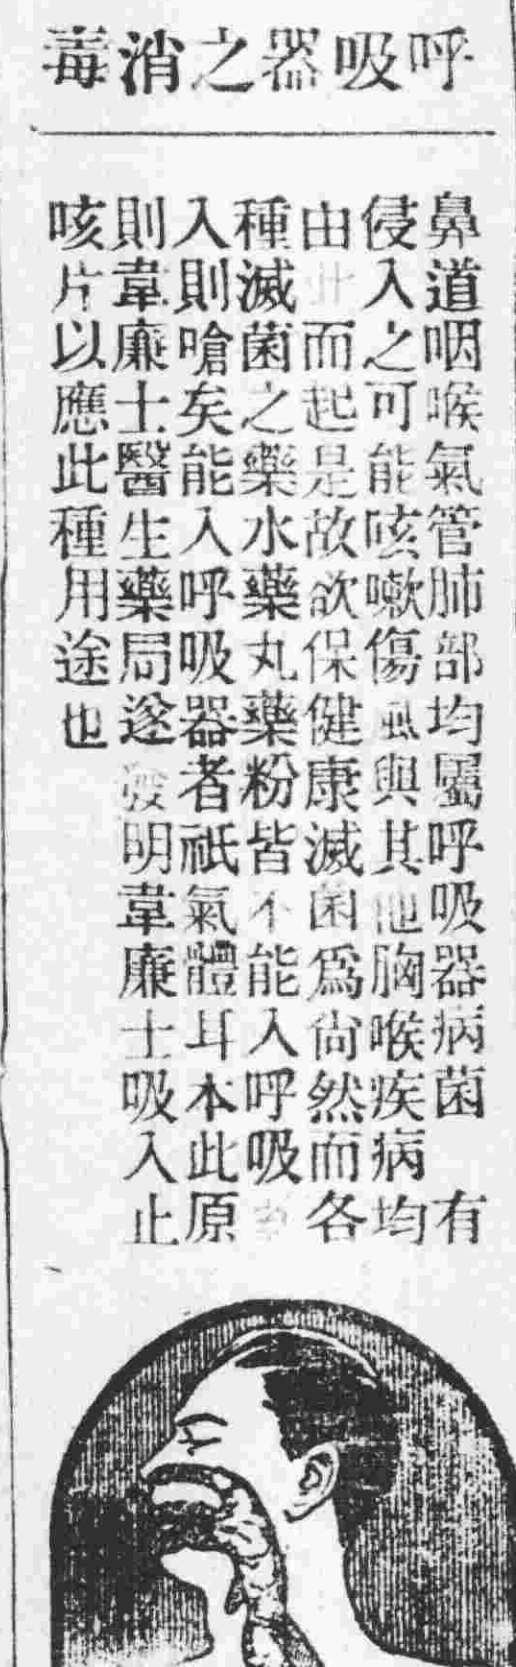 呼吸器之消毒
鼻道咽喉氣管肺部均屬呼吸器病菌有
侵入之可能咳嗽傷風與其他胸喉疾病均
由此而起是故欲保健康滅菌爲尙然而各
種滅菌之藥水藥丸藥粉皆不能入呼吸
入則嗆矣能入呼吸器者祇氣體耳本此原
則韋廉士醫生藥局遂發明韋廉士吸入止
咳片以應此種用途也